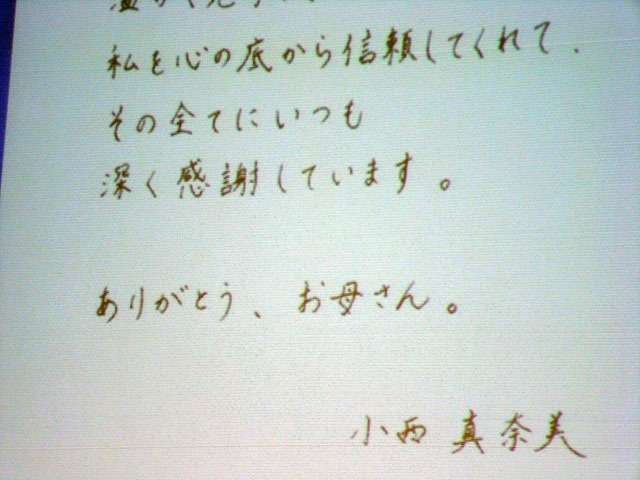 私を心の底から信頼してくれて、
その全てにいつも
深く感謝しています。
ありがとう、お母さん。
小西 真奈美